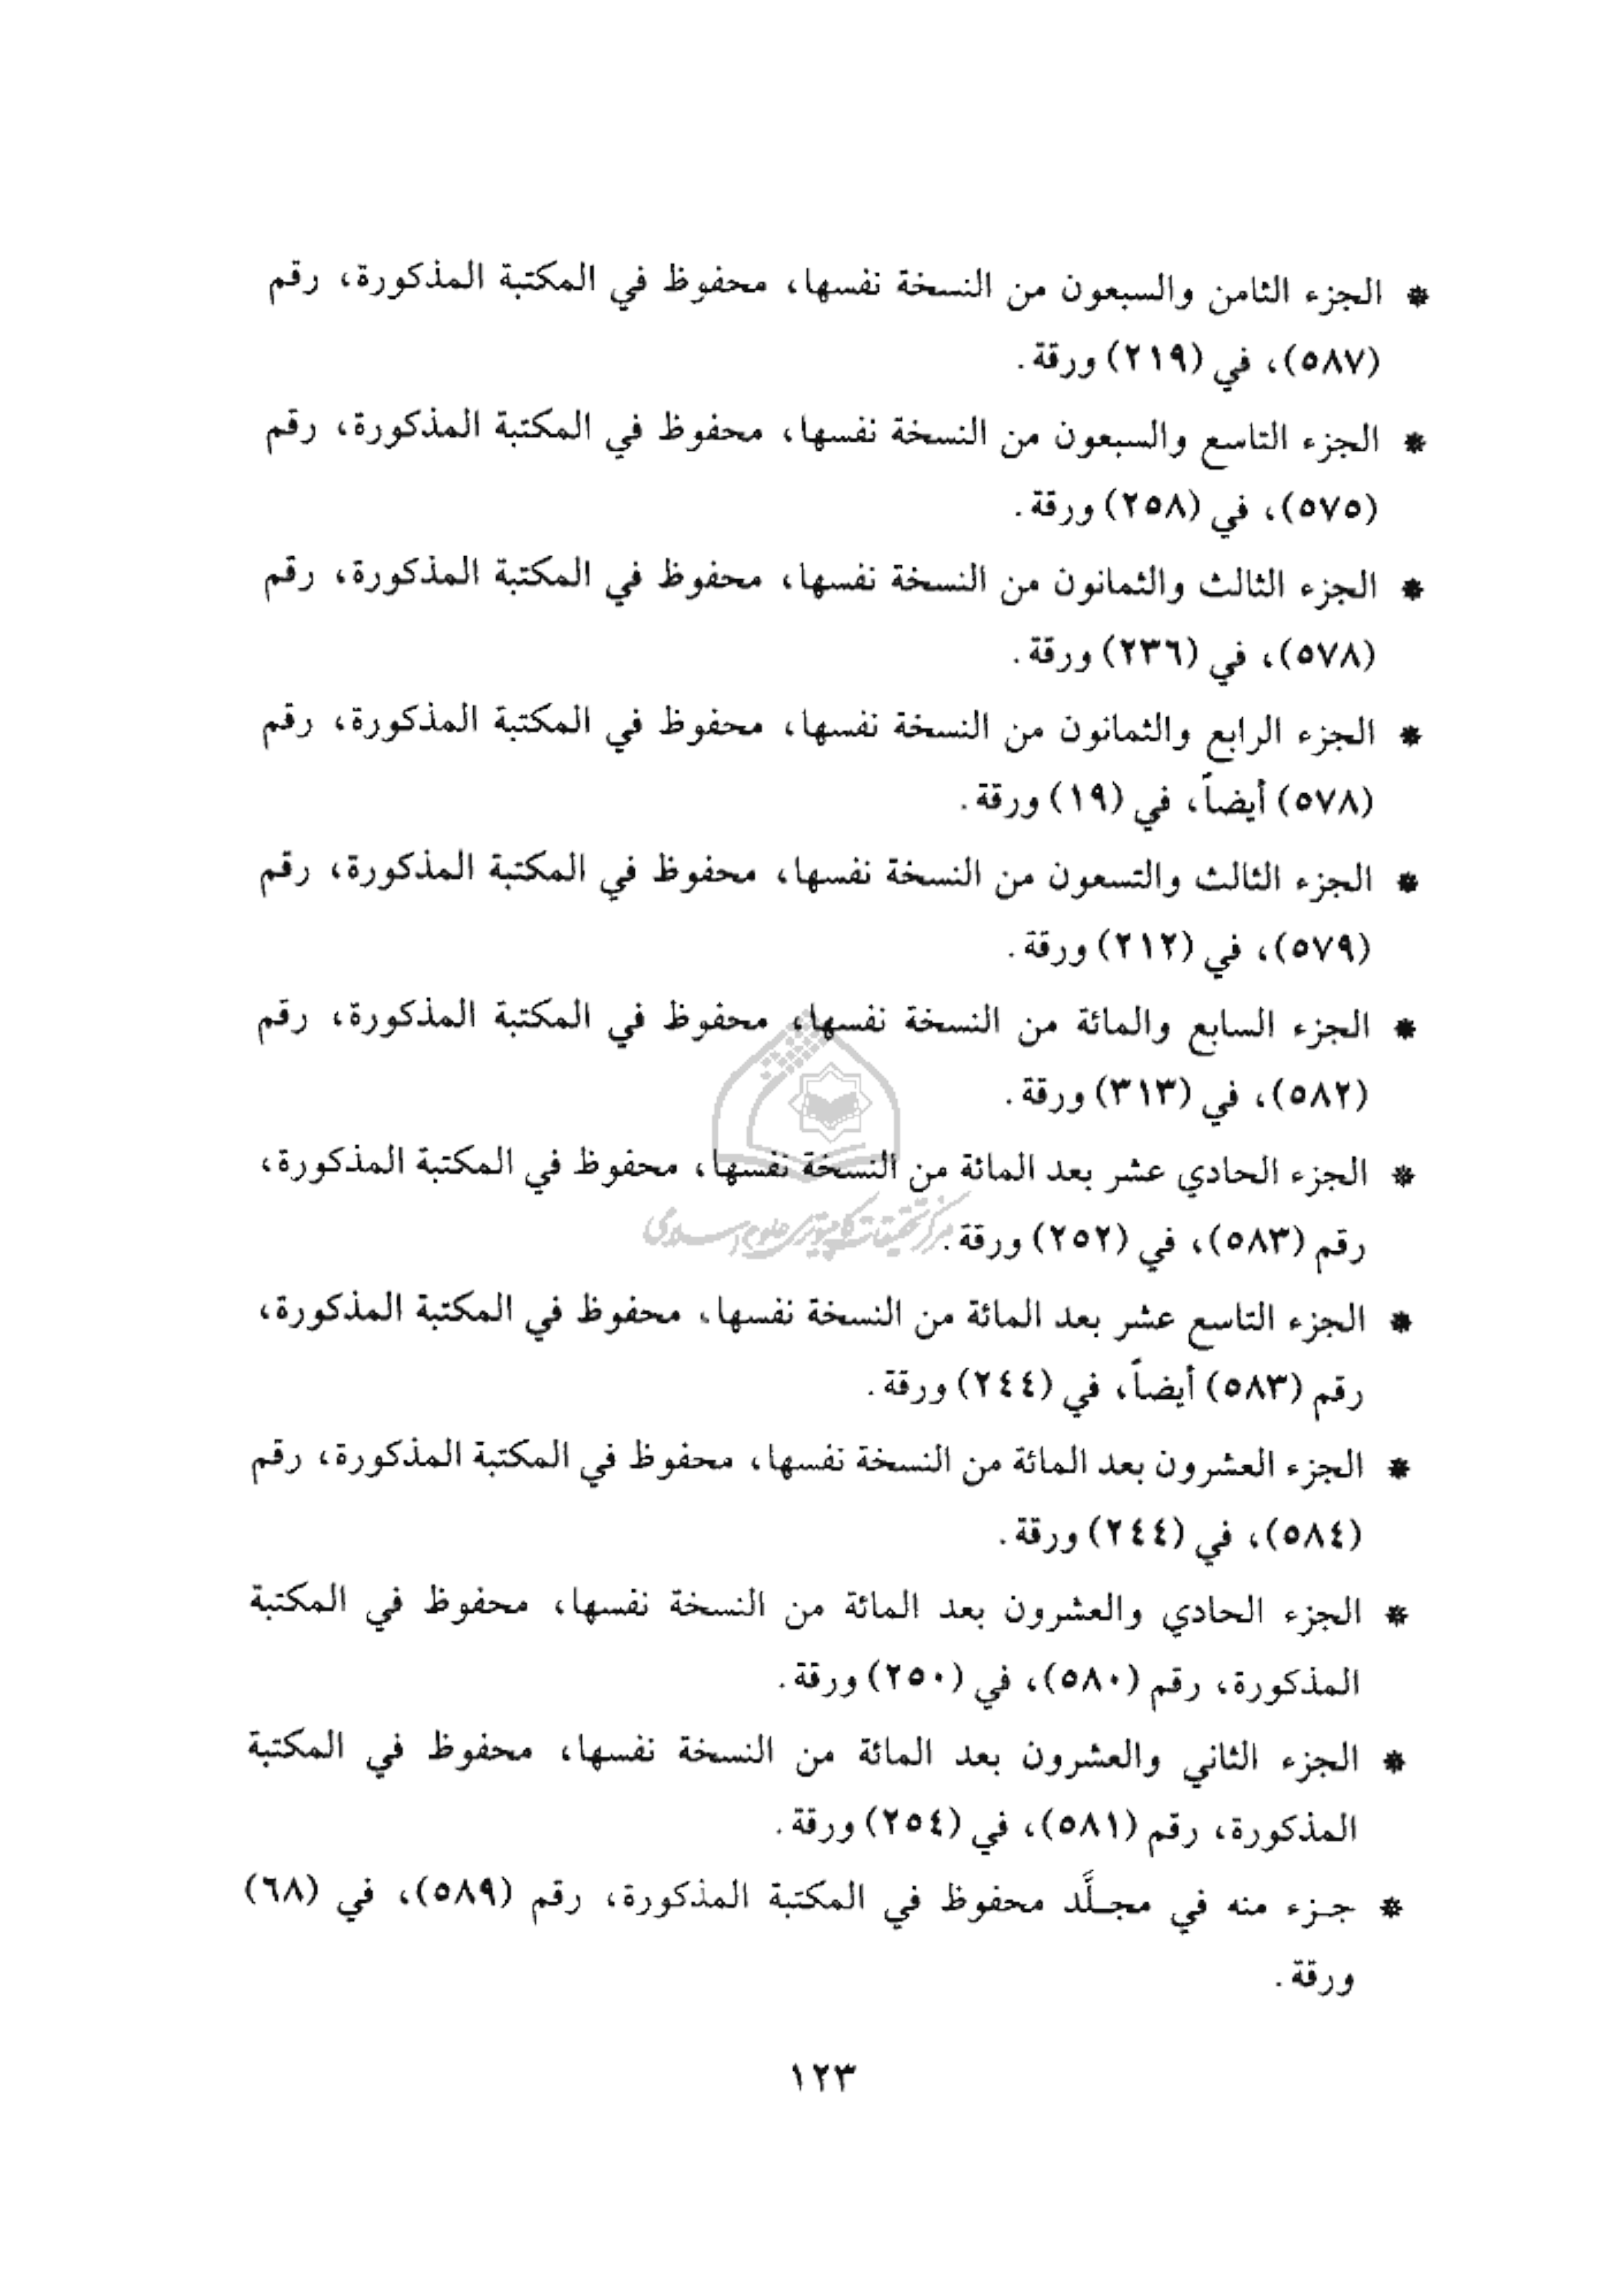 * الجزء الثامن والسبعون من النسخة نفسها، محفوظ في المكتبة المذكورة، رقم
(٥٨٧)، في (٢١٩) ورقة.
* الجزء التاسع والسبعون من النسخة نفسها، محفوظ في المكتبة المذكورة، رقم
(٥٧٥)، في (٢٥٨) ورقة.
* الجزء الثالث والثمانون من النسخة نفسها، محفوظ في المكتبة المذكورة، رقم
(٥٧٨)، في (٢٣٦) ورقة.
* الجزء الرابع والثمانون من النسخة نفسها، محفوظ في المكتبة المذكورة، رقم
(٥٧٨) أيضاً، في (١٩) ورقة.
* الجزء الثالث والتسعون من النسخة نفسها، محفوظ في المكتبة المذكورة، رقم
(٥٧٩)، في (٢١٢) ورقة.
* الجزء السابع والمائة من النسخة نفسها، محفوظ في المكتبة المذكورة، رقم
(٥٨٢)، في (٣١٣) ورقة.
* الجزء الحادي عشر بعد المائة من النسخة نفسها، محفوظ في المكتبة المذكورة،
رقم (٥٨٣)، في (٢٥٢) ورقة.
مرکز تحقیقات کامپیوتری علوم اسلامی
* الجزء التاسع عشر بعد المائة من النسخة نفسها، محفوظ في المكتبة المذكورة،
رقم (٥٨٣) أيضاً، في (٢٤٤) ورقة.
* الجزء العشرون بعد المائة من النسخة نفسها، محفوظ في المكتبة المذكورة، رقم
(٥٨٤)، في (٢٤٤) ورقة.
* الجزء الحادي والعشرون بعد المائة من النسخة نفسها، محفوظ في المكتبة
المذكورة، رقم (٥٨٠)، في (٢٥٠) ورقة.
* الجزء الثاني والعشرون بعد المائة من النسخة نفسها، محفوظ في المكتبة
المذكورة، رقم (٥٨١)، في (٢٥٤) ورقة.
* جـزء منه في مجـلَّد محفوظ في المكتبة المذكورة، رقم (٥٨٩)، في (٦٨)
ورقة.
١٢٣